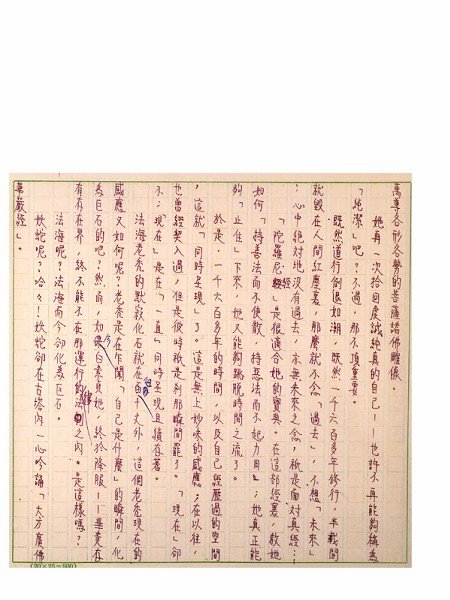 萬尊各形各勢的菩薩諸佛雕像。
她再一次拾回虔誠純真的自己——也許不再能夠稱為
「純潔」吧？不過，那不頂重要。
既然道行倒退如潮，既然一千六百多年修行，半載間
就毀在人間紅塵裏，那麼就不念「過去」，不想「未來」
；心中絕對地沒有過去，亦無未來之念，祇是面對真經：
「陀羅尼經」是很適合她的寶典。在這部經裏，教她
如何「持善法而不使散，持惡法而不起力用」；她真正能
夠「止住」下來，她又能夠跳脫時間之流了。
於是，一千六百多年的時間，以及自己經歷過的空間
，這就「同時呈現」了。這是無上妙味的感應；在以往，
也曾經契入過，但是彼時祇是剎那瞬間罷了。「現在」卻
不；「現在」是在「一直」同時呈現且續有著。
法海老禿的默寂化石就在百丈外，這個老禿現在的
感應又如何呢？老禿是在乍聞「自己是什麼」的瞬間，化
為巨石的吧？然而，如今白素貞她，終於降服——畢竟在
有在界，終不能不在那運行的法律之內。是這樣嗎？
法海呢？法海而今卻化為巨石。
妖蛇呢？哈哈！妖蛇卻在古塔內一心吟誦「大方廣佛
華嚴經」。
(20×25=500)